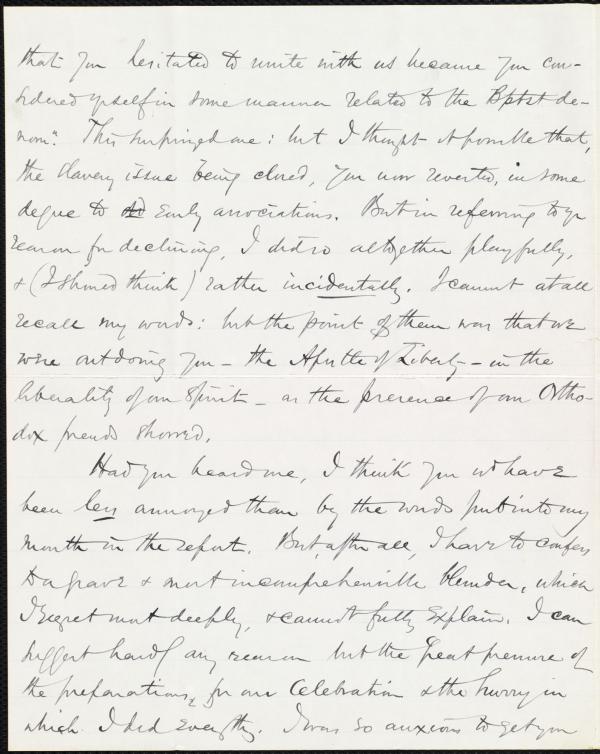 that you hesitated to unite with us because you con-
sidered yrself in some manner related to the Bptst de-
nomn. This surprised me: but I thought it possible that,
the slavery issue being closed, you now reverted, in some
degree to old Early associations. But in referring to yr
reason for declining, I did so altogether playfully,
& (I should think) rather incidentally. I cannot at all
recall my words: but the point of them was that we
were outdoing you - the Apostle of Liberty - in the
liberality of our spirit - as the presence of our Ortho-
dox friends showed.
Had you heard me, I think you wd have
been less annoyed than by the words put into my
mouth in the report. But after all, I have to confess
to a grave & most incomprehensible blunder, which
I regret most deeply, & cannot fully explain. I can
suggest hardly any reason but the great pressure of
the preparations, for our Celebration & the hurry in
which I did everythg. I was so anxious to get you